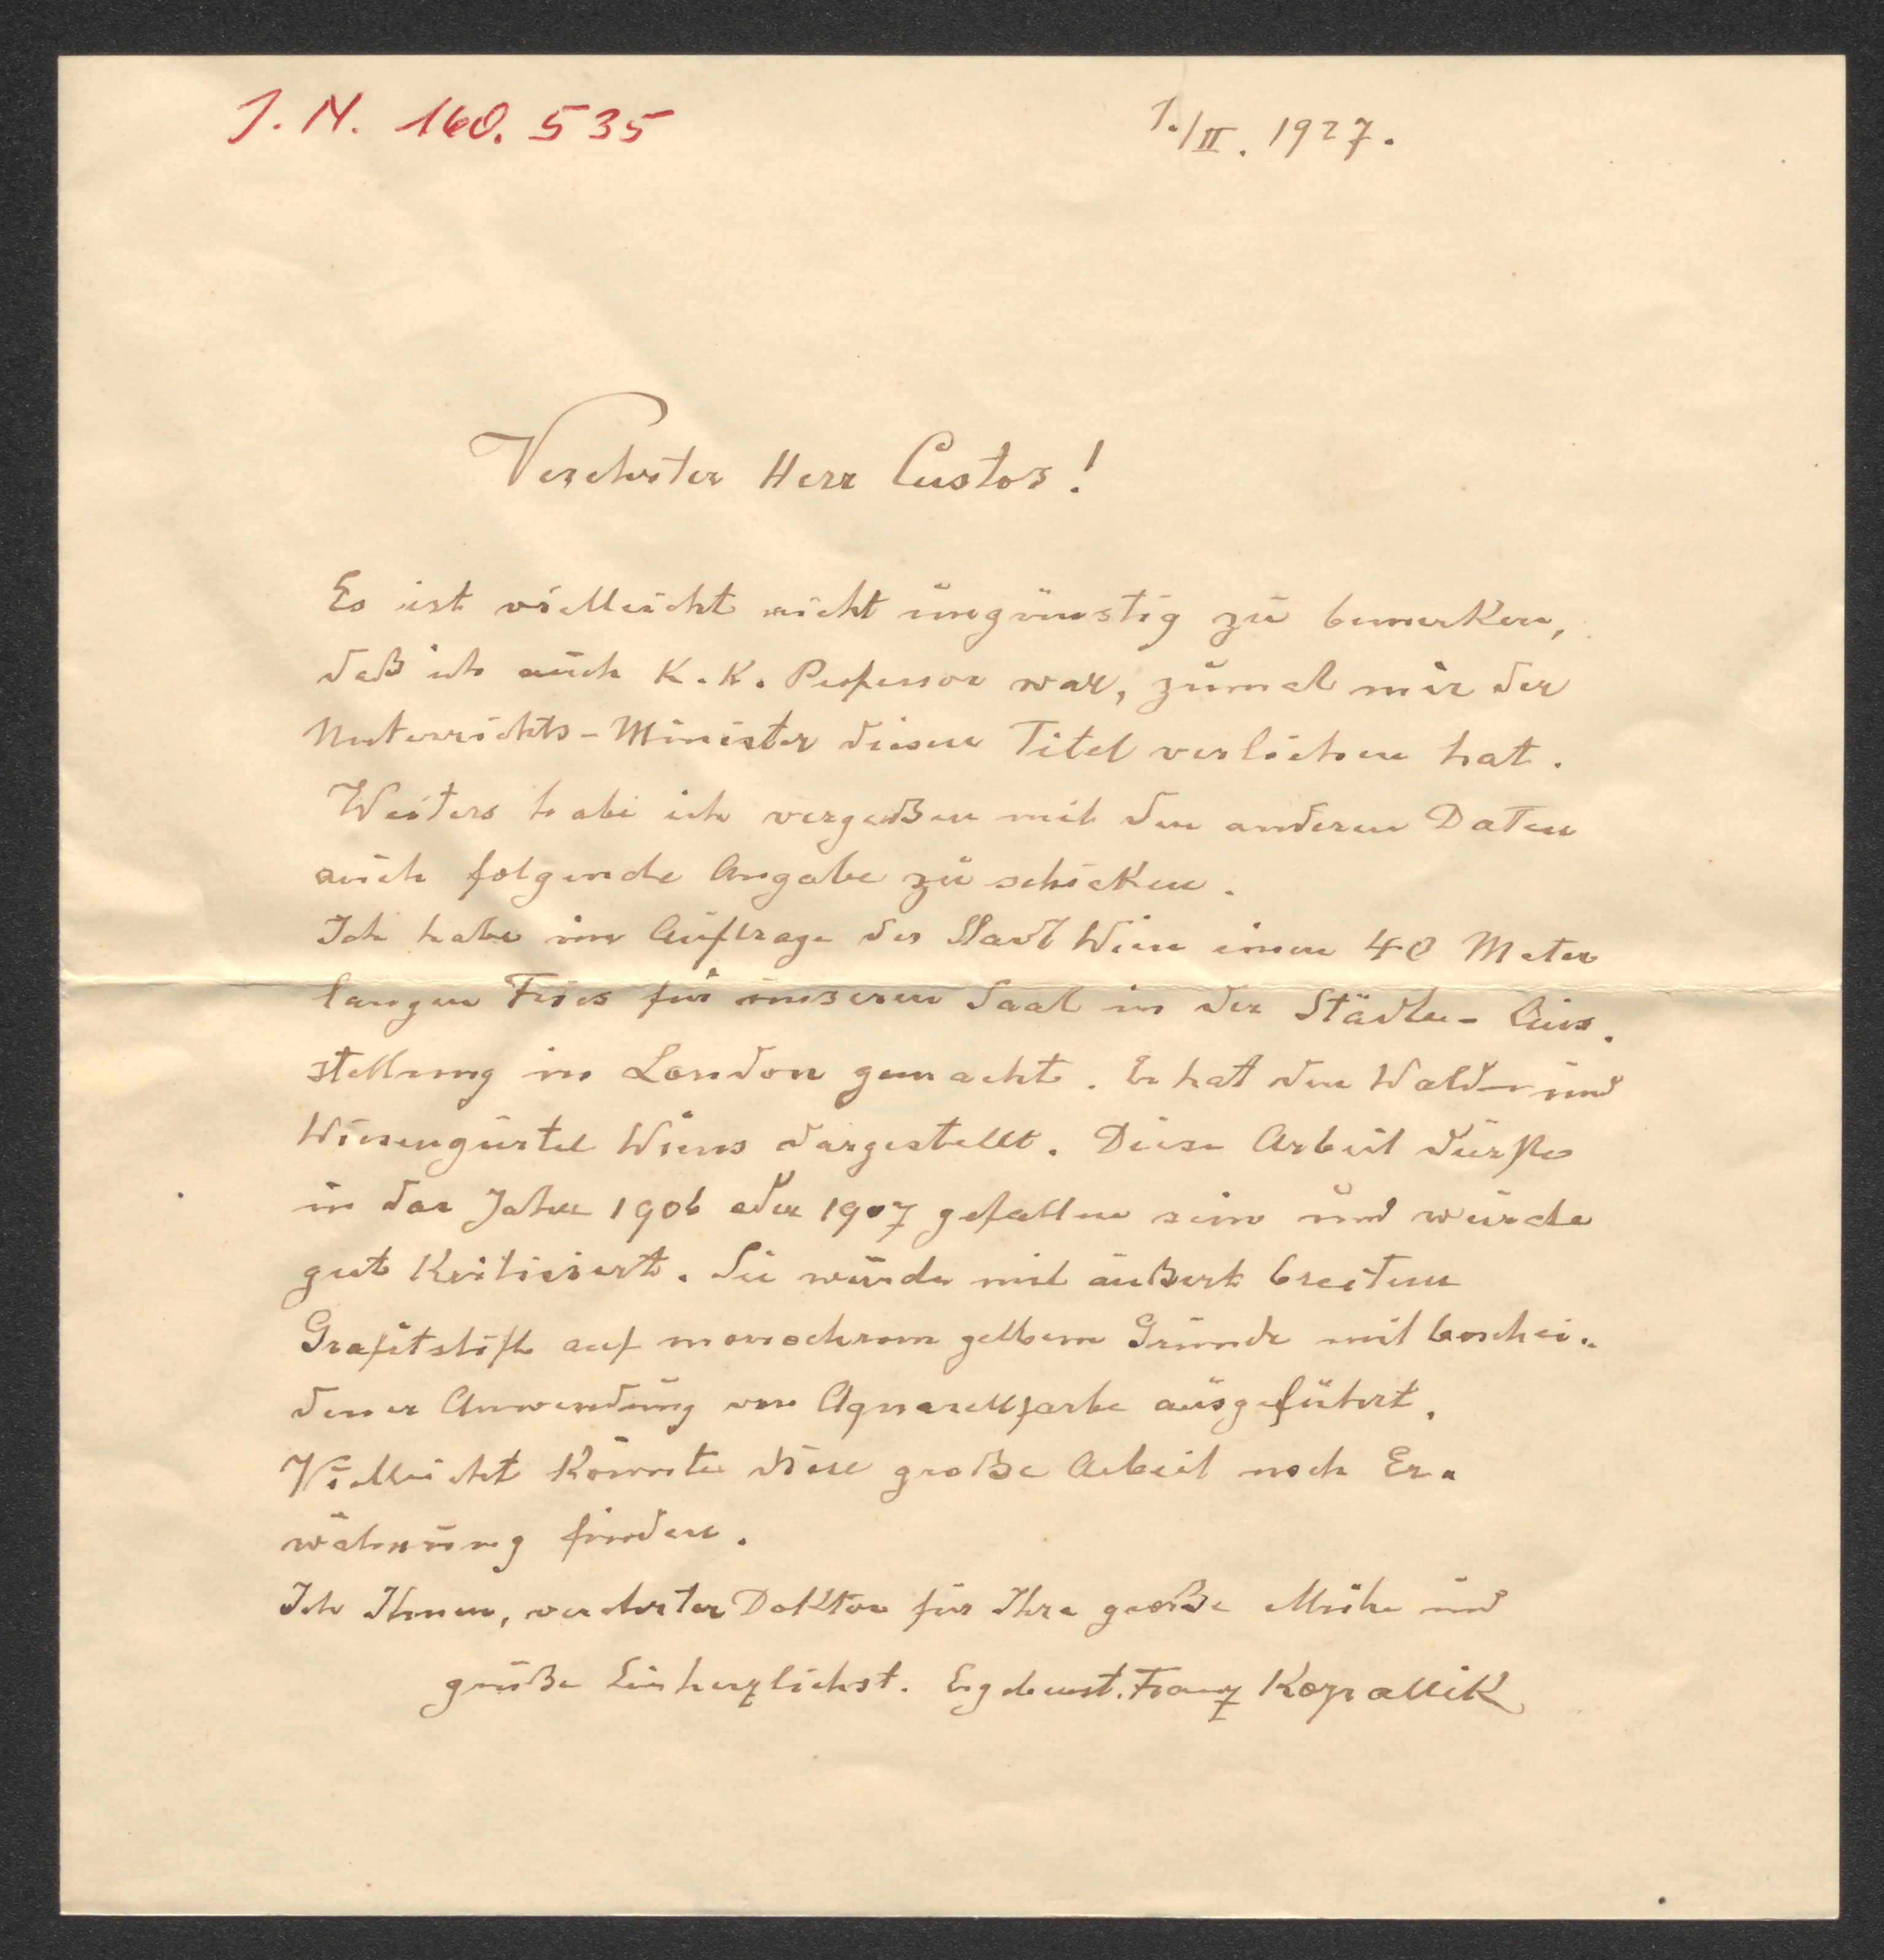 J. N. 160.535
1./II. 1927.
Verehrter Herr Custos!
Es ist vielleicht nicht ungünstig zu bemerken,
daß ich auch K. K. Professor war, zumal mir der
Unterrichts-Minister diesen Titel verliehen hat.
Weiters habe ich vergeßen mit den anderen Daten
auch folgende Angabe zu schicken.
Ich habe im Auftrage der Stadt Wien einen 48 Meter
langen Fries für unseren Saal in der Städte-Aus-
stellung in London gemacht. Er hat den Wald- und
Wiesengürtel Wiens dargestellt. Diese Arbeit dürfte
in das Jahr 1906 oder 1907 gefallen sein und wurde
gut kritisiert. Sie wurde mit äußerst breitem
Grafitstift auf monochrom gelbem Grunde mit beschei-
dener Anwendung von Aquarellfarbe ausgeführt.
Vielleicht könnte diese große Arbeit noch Er-
wähnung finden.
Ich Ihnen, verehrter Doktor für Ihre große Mühe und
grüße Sie herzlichst. Ergebenst. Franz Kopallik